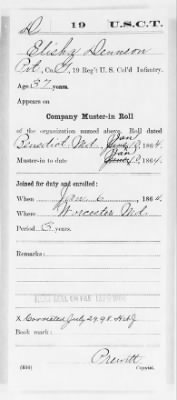 D 19 U.S.C.T.
Elisha Dennson
Pvt, Co. F, 19 Reg't U. S. Col'd Infantry.
Age 37 years.
Appears on
Company Muster-in Roll
of the organization named above. Roll dated
Benedict Md. Jan 10, 1864.
Muster-in to date Jan 10, 1864
Joined for duty and enrolled:
When Jan 6, 1864.
Where Worcester Md.
Period 3 years.
Remarks:
X Corrected July 29.98.
Book mark:
Prewitt
(356) Copyist.